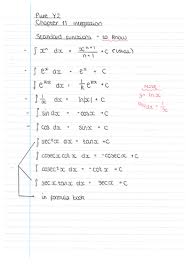 Pure Y2
Chapter 11 Integration
Standard functions - to know
- ∫ xⁿ dx = xⁿ⁺¹/n+1 + C (usual)
- ∫ eˣ dx = eˣ + C
- ∫ eᵏˣ dx = 1/k eᵏˣ + C
- ∫ 1/x dx = ln|x| + C
NOTE
y = ln x
dy/dx = 1/x
- ∫ cos x dx = sin x + C
- ∫ sin x dx = -cos x + C
- ∫ sec²x dx = tan x + C
- ∫ cosec x cot x dx = -cosec x + C
- ∫ cosec²x dx = -cot x + C
- ∫ sec x tan x dx = sec x + C
in formula book